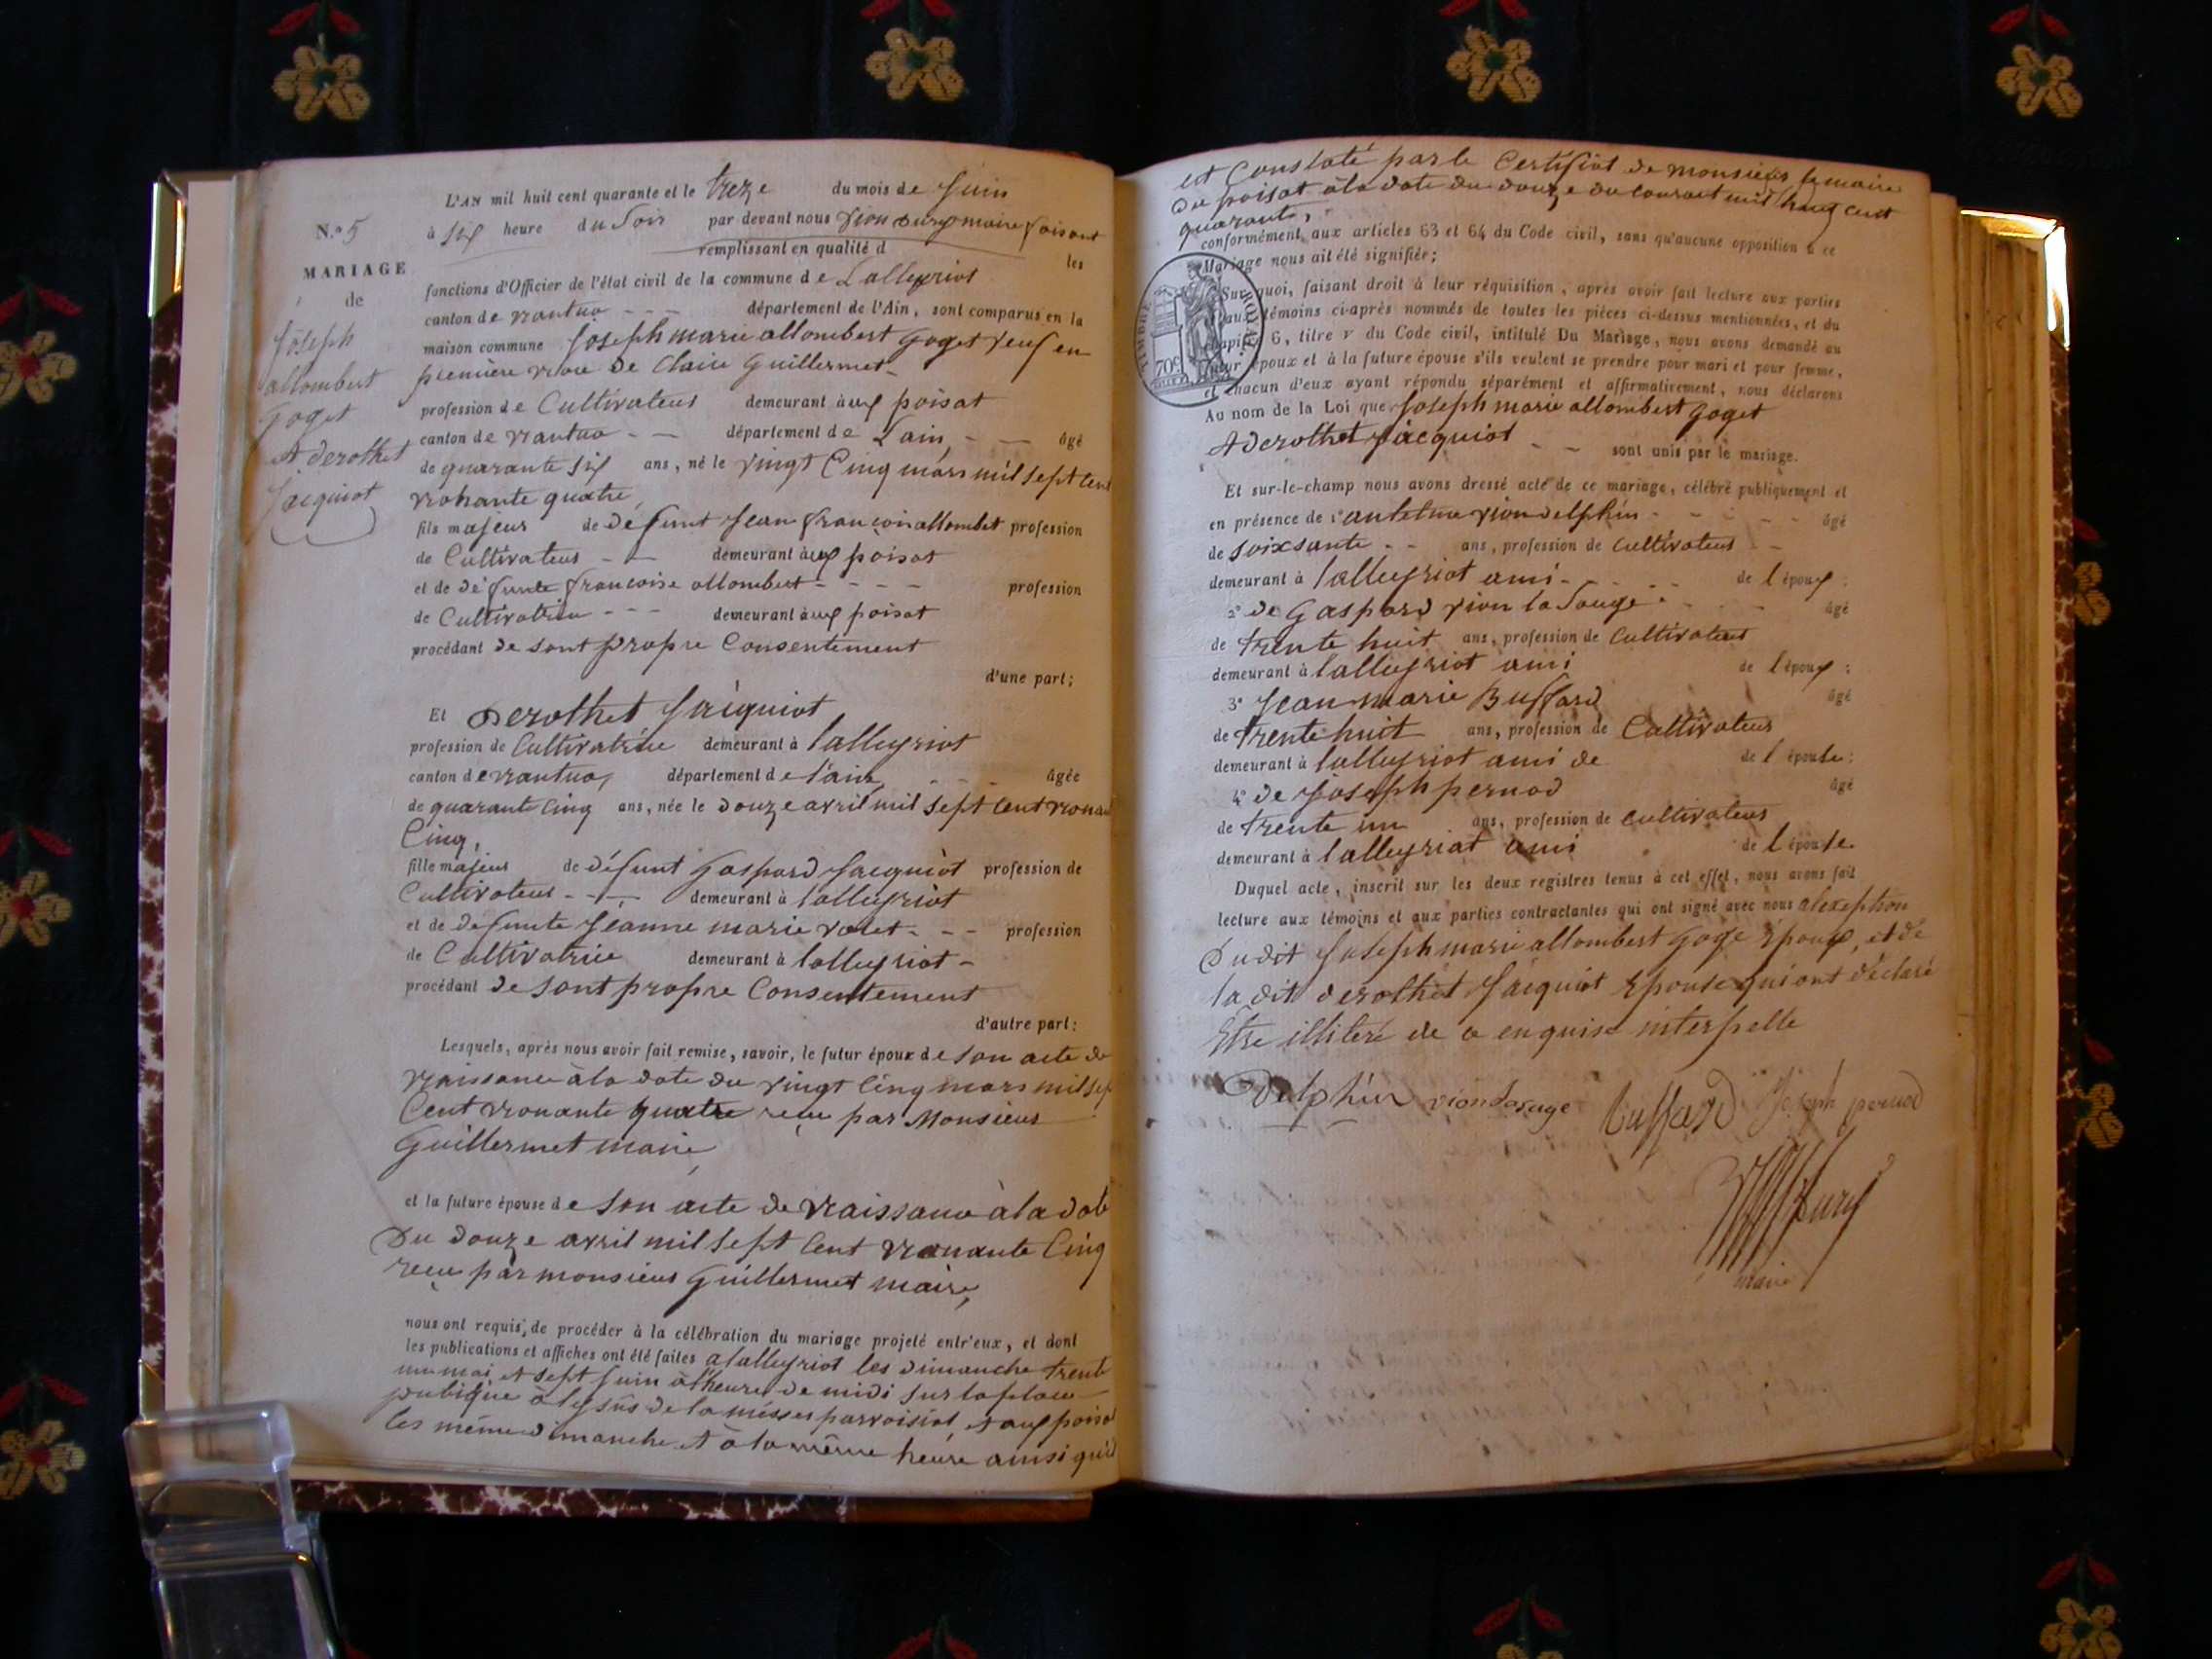 L'AN mil huit cent quarante et le treze du mois de Juin
N.º 5
à six heure du Soir par devant nous vion Dury maire faisant
remplissant en qualité d les
MARIAGE
de
Joseph
allombert
goget
et derothet
Jacquiot
fonctions d'Officier de l'état civil de la commune de Lalleyriat
canton de nantua - - - département de l'Ain, sont comparus en la
maison commune Joseph marie allombert goget veuf en
première noce de Claire Guillermet -
profession de Cultivateur demeurant à aux poisat
canton de nantua - - département de Lain - - âgé
de quarante six ans, né le vingt Cinq mars mil sept cent
nonante quatre,
fils majeur de défunt Jean françois allombert profession
de Cultivateur - - demeurant à aux poisat
et de défunte françoise allombert - - - - profession
de Cultivatrice - - - demeurant à aux poisat
procédant de sont propre Consentement
d'une part;
Et Derothet Jacquiot
profession de Cultivatrice demeurant à lalleyriat
canton de nantua, département de l'ain, - - - âgée
de quarante Cinq ans, née le douze avril mil sept cent nonan
Cinq,
fille majeur de défunt Gaspard Jacquiot profession de
Cultivateur - - - demeurant à lalleyriat
et de défunte Jeanne marie volet - - - profession
de Cultivatrice demeurant à lalleyriat -
procédant de sont propre Consentement
d'autre part;
Lesquels, après nous avoir fait remise, savoir, le futur époux de son acte de
naissance à la date du vingt Cinq mars mil sep
Cent nonante quatre reçu par Monsieur
Guillermet maire,
et la future épouse de son acte de naissance à la date
Du douze avril mil sept Cent nonante Cinq
reçu par monsieur Guillermet maire,
nous ont requis, de procéder à la célébration du mariage projeté entr'eux, et dont
les publications et affiches ont été faites a lalleyriat les dimanche trente
un mai et sept Juin à l'heure de midi sur la place
publique à lissus de la messes parroisial, et aux poisat
les même dimanche et à la même heure ainsi qu'il
est Constaté par le Certificat de monsieur le maire
du poisat à la date du douze du courant mil huit cent
quarante,
conformément aux articles 63 et 64 du Code civil, sans qu'aucune opposition à ce
Mariage nous ait été signifiée;
TIMBRE ROYAL
70 c.
Sur quoi, faisant droit à leur réquisition, après avoir fait lecture aux parties
et aux témoins ci-après nommés de toutes les pièces ci-dessus mentionnées, et du
chapitre 6, titre v du Code civil, intitulé Du Mariage, nous avons demandé au
futur époux et à la future épouse s'ils veulent se prendre pour mari et pour femme,
et chacun d'eux ayant répondu séparément et affirmativement, nous déclarons
Au nom de la Loi que Joseph marie allombert goget
et derothet Jacquiot - - sont unis par le mariage.
Et sur-le-champ nous avons dressé acte de ce mariage, célébré publiquement et
en présence de 1º antelme vion delphin - - - - - âgé
de soixsante - - ans, profession de Cultivateur - -
demeurant à lalleyriat ami - - - - de l'époux:
2º de Gaspard vion la Sauge - - - - âgé
de trente huit ans, profession de Cultivateur
demeurant à lalleyriat ami de l'époux:
3º Jean marie Buffard âgé
de trente huit ans, profession de Cultivateur
demeurant à lalleyriat ami de de l'épouse:
4º de Joseph pernod âgé
de trente un ans, profession de Cultivateur
demeurant à lalleyriat ami de l'épouse
Duquel acte, inscrit sur les deux registres tenus à cet effet, nous avons fait
lecture aux témoins et aux parties contractantes qui ont signé avec nous alexeption
Du dit Joseph marie allombert goge époux, et de
la dit derothet Jacquiot épouse qui ont déclaré
Etre illiteré de ce enquise interpelle
Delphin vion lasauge buffard Joseph pernod
Dury
maire